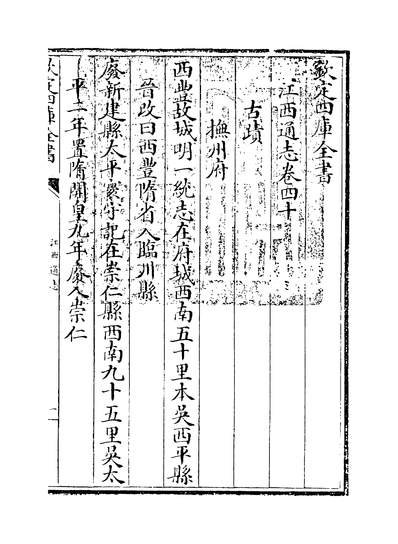 欽定四庫全書
江西通志卷四十
古蹟
撫州府
西豐故城明一統志在府城西南五十里本吳西平縣
晉改曰西豐隋省入臨川縣
廢新建縣太平寰宇記在崇仁縣西南九十五里吳太
平二年置隋開皇九年廢入崇仁
欽定四庫全書
江西通志